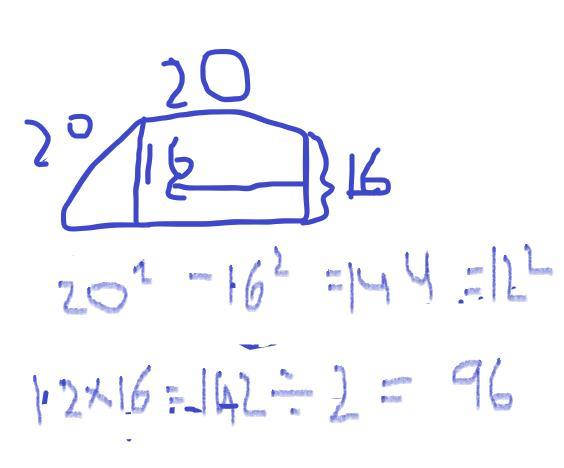 20
20
16
16
20² - 16² = 144 = 12²
12×16 = 142 ÷ 2 = 96